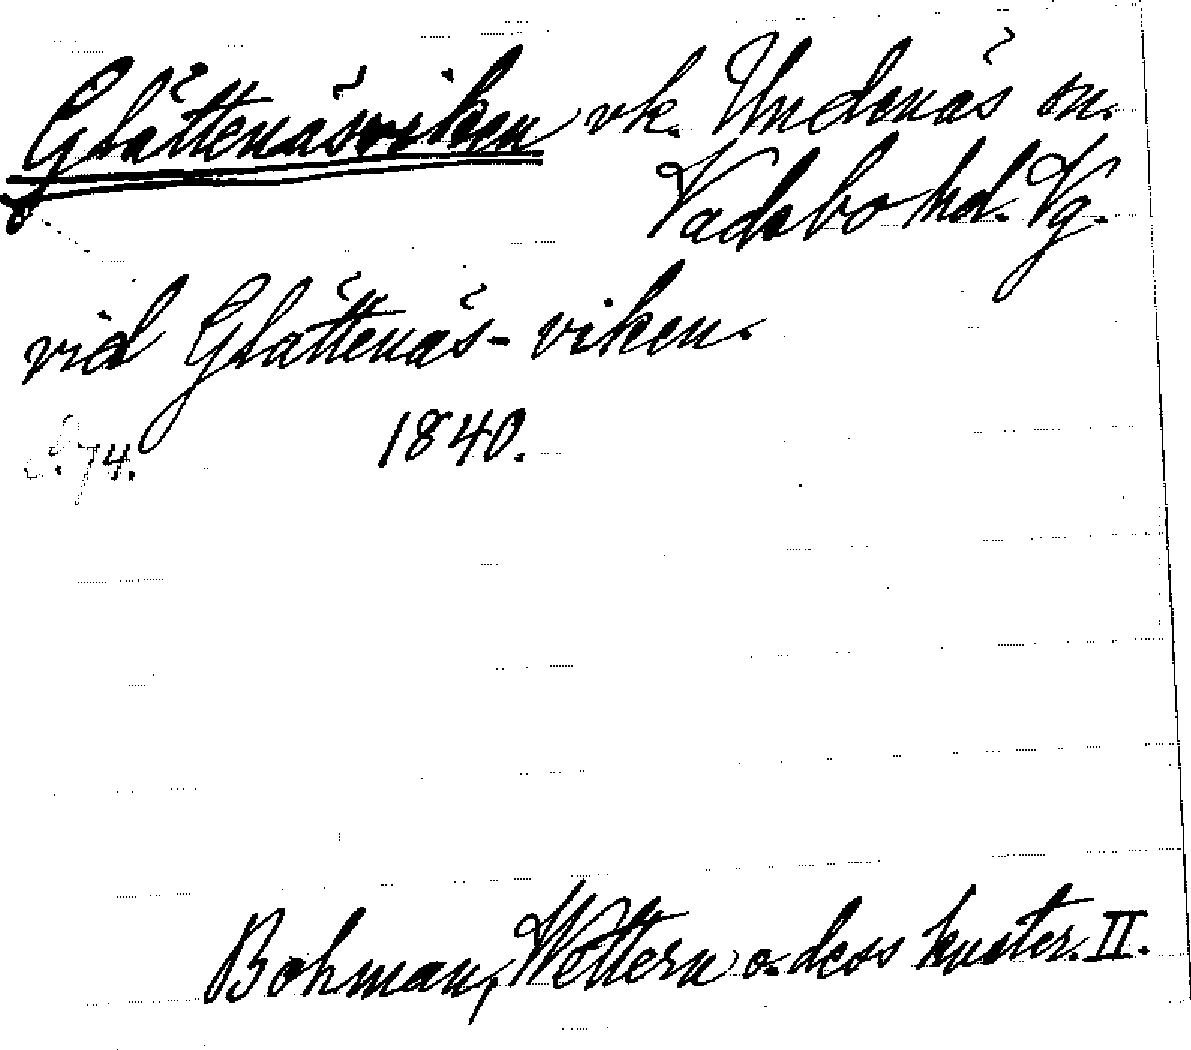 Glättenäsviken vk. Undenäs sn.
Vadsbo hd. Vg.
vid Glättenäs-viken.
S. 74. 1840.
Bohman, Wettern o. dess kuster. II.